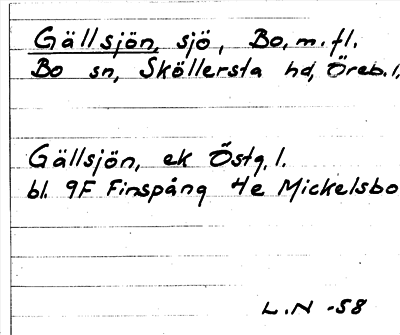 Gällsjön, sjö, Bo, m. fl.
Bo sn, Sköllersta hd, Öreb. l.
Gällsjön, ek Östg. l.
bl. 9F Finspång 4e Mickelsbo
L.N -58